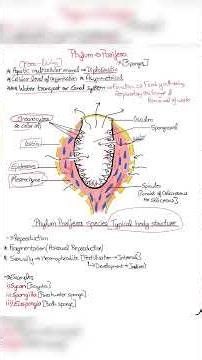 Phylum → Porifera
[Pore-bearing] [Sponges]
* Aquatic multicellular animal → Diploblastic
* Cellular level of organisation * Asymmetrical
*** Water transport or Canal system → Function → Food gathering, Respiratory exchange & Removal of waste
Choanocytes or Collar cell
Osculum
Spongocoel
Ostia
Epidermis
Mesenchyme
Spicules
[Consist of Calcareous or Siliceous]
Phylum Porifera species Typical body structure
→ Reproduction
* Fragmentation [Asexual Reproduction]
* Sexually → Hermaphrodite [Fertilization → Internal]
↳ Development → Indirect]
→ Examples
i) Sycon [Scypha]
ii) Spongilla [Fresh water sponge]
iii) Euspongia [Bath sponge]